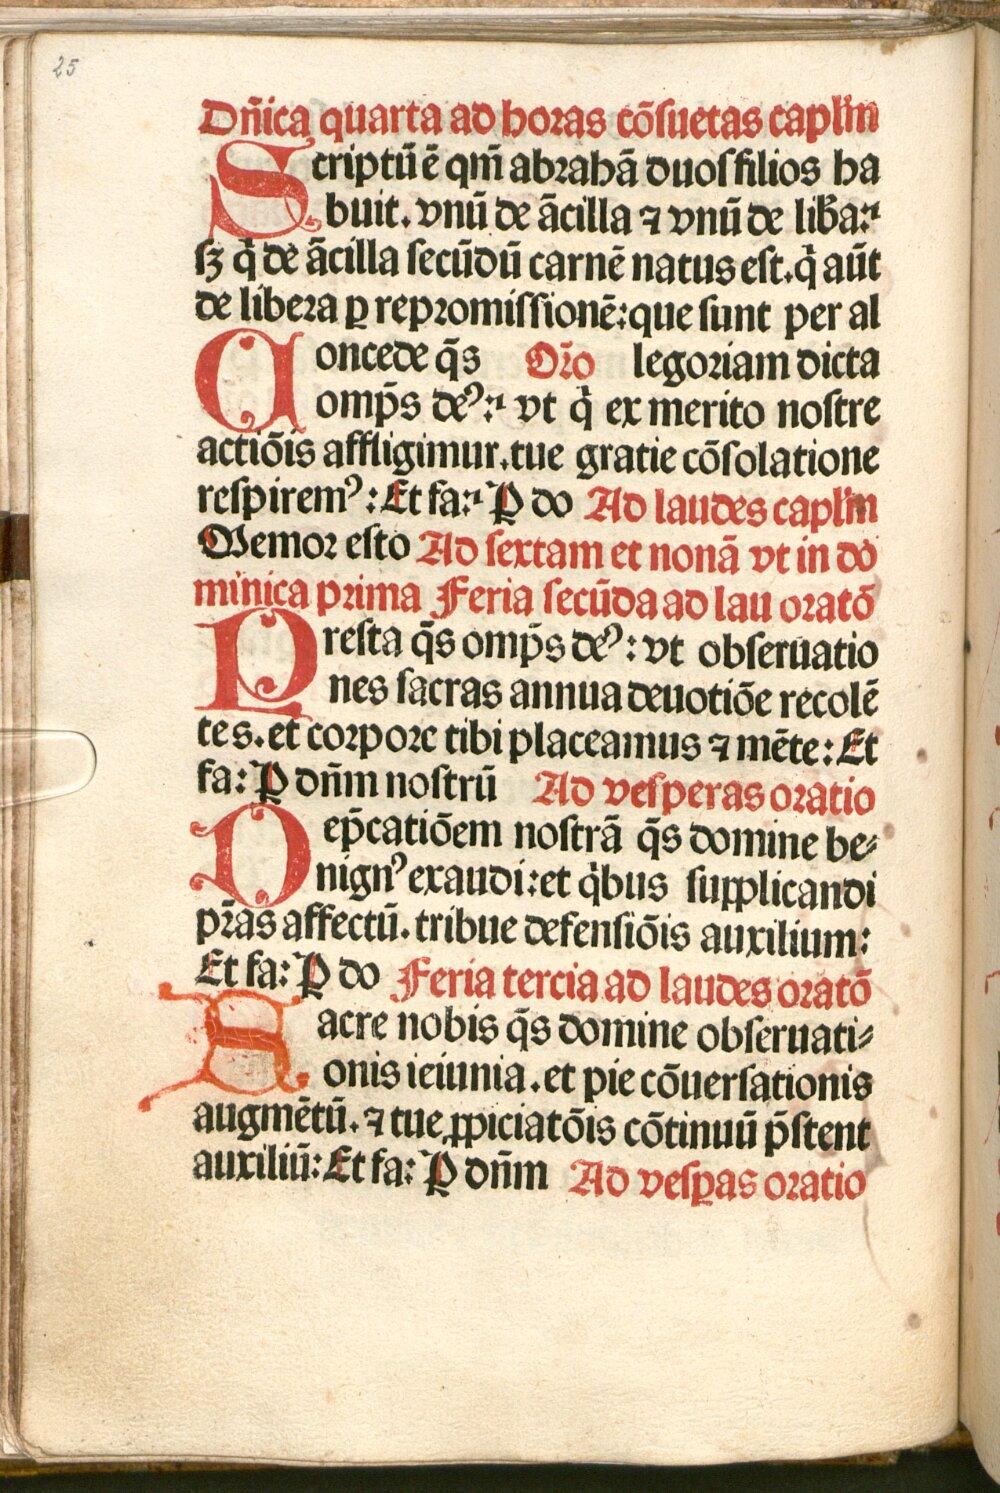 25
Dn̄ica quarta ad horas cōsuetas caplm̄
Scriptū ē qm̄ abrahā duos filios ha
buit. vnū de ācilla ⁊ vnū de liƀa:⁊
sꝫ q̇ de ācilla secūdū carnē natus est. q̇ aūt
de libera ꝑ repromissionē: que sunt per al
Concede q̄s Or̄o legoriam dicta
omp̄s deꝰ:⁊ vt q̇ ex merito nostre
actiōis affligimur. tue gratie cōsolatione
respiremꝰ: Et fa:⁊ P do Ad laudes caplm̄
Memor esto Ad sextam et nonā vt in do
minica prima Feria secūda ad lau oratō
Presta q̄s omp̄s deꝰ: vt obseruatio
nes sacras annua deuotiōe recolē
tes. et corpore tibi placeamus ⁊ mēte: Et
fa: P dn̄m nostrū Ad vesperas oratio
Dep̄catiōem nostrā q̄s domine be⸗
nignꝰ exaudi: et q̇bus supplicandi
pr̄as affectū. tribue defensiōis auxilium:
Et fa: P do Feria tercia ad laudes oratō
Sacre nobis q̄s domine obseruati⸗
onis ieiunia. et pie cōuersationis
augmētū. ⁊ tue ꝓpiciatōis cōtinuū p̄stent
auxiliū: Et fa: P dn̄m Ad vesꝑas oratio